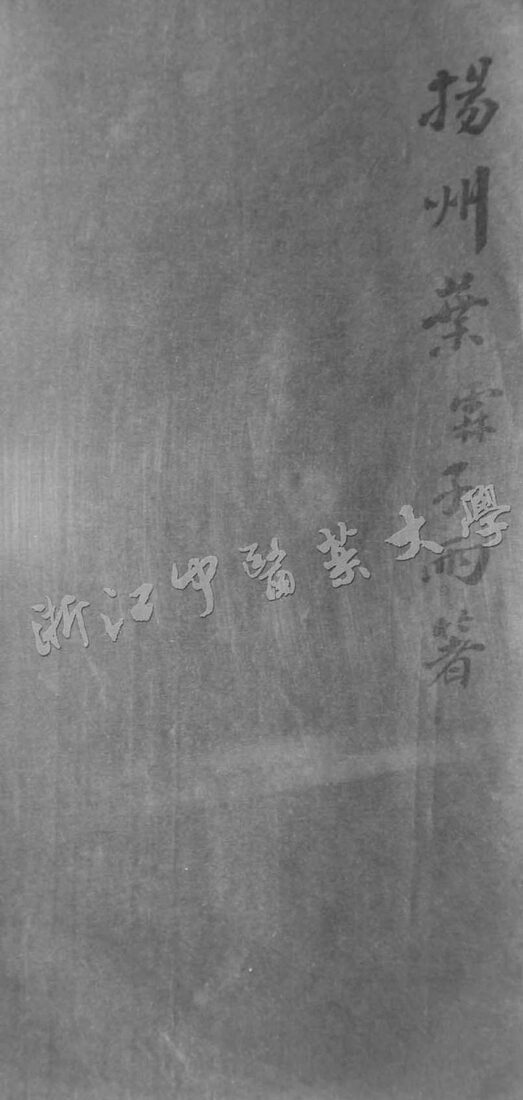 揚州葉霖子雨箸
浙江中醫药大學